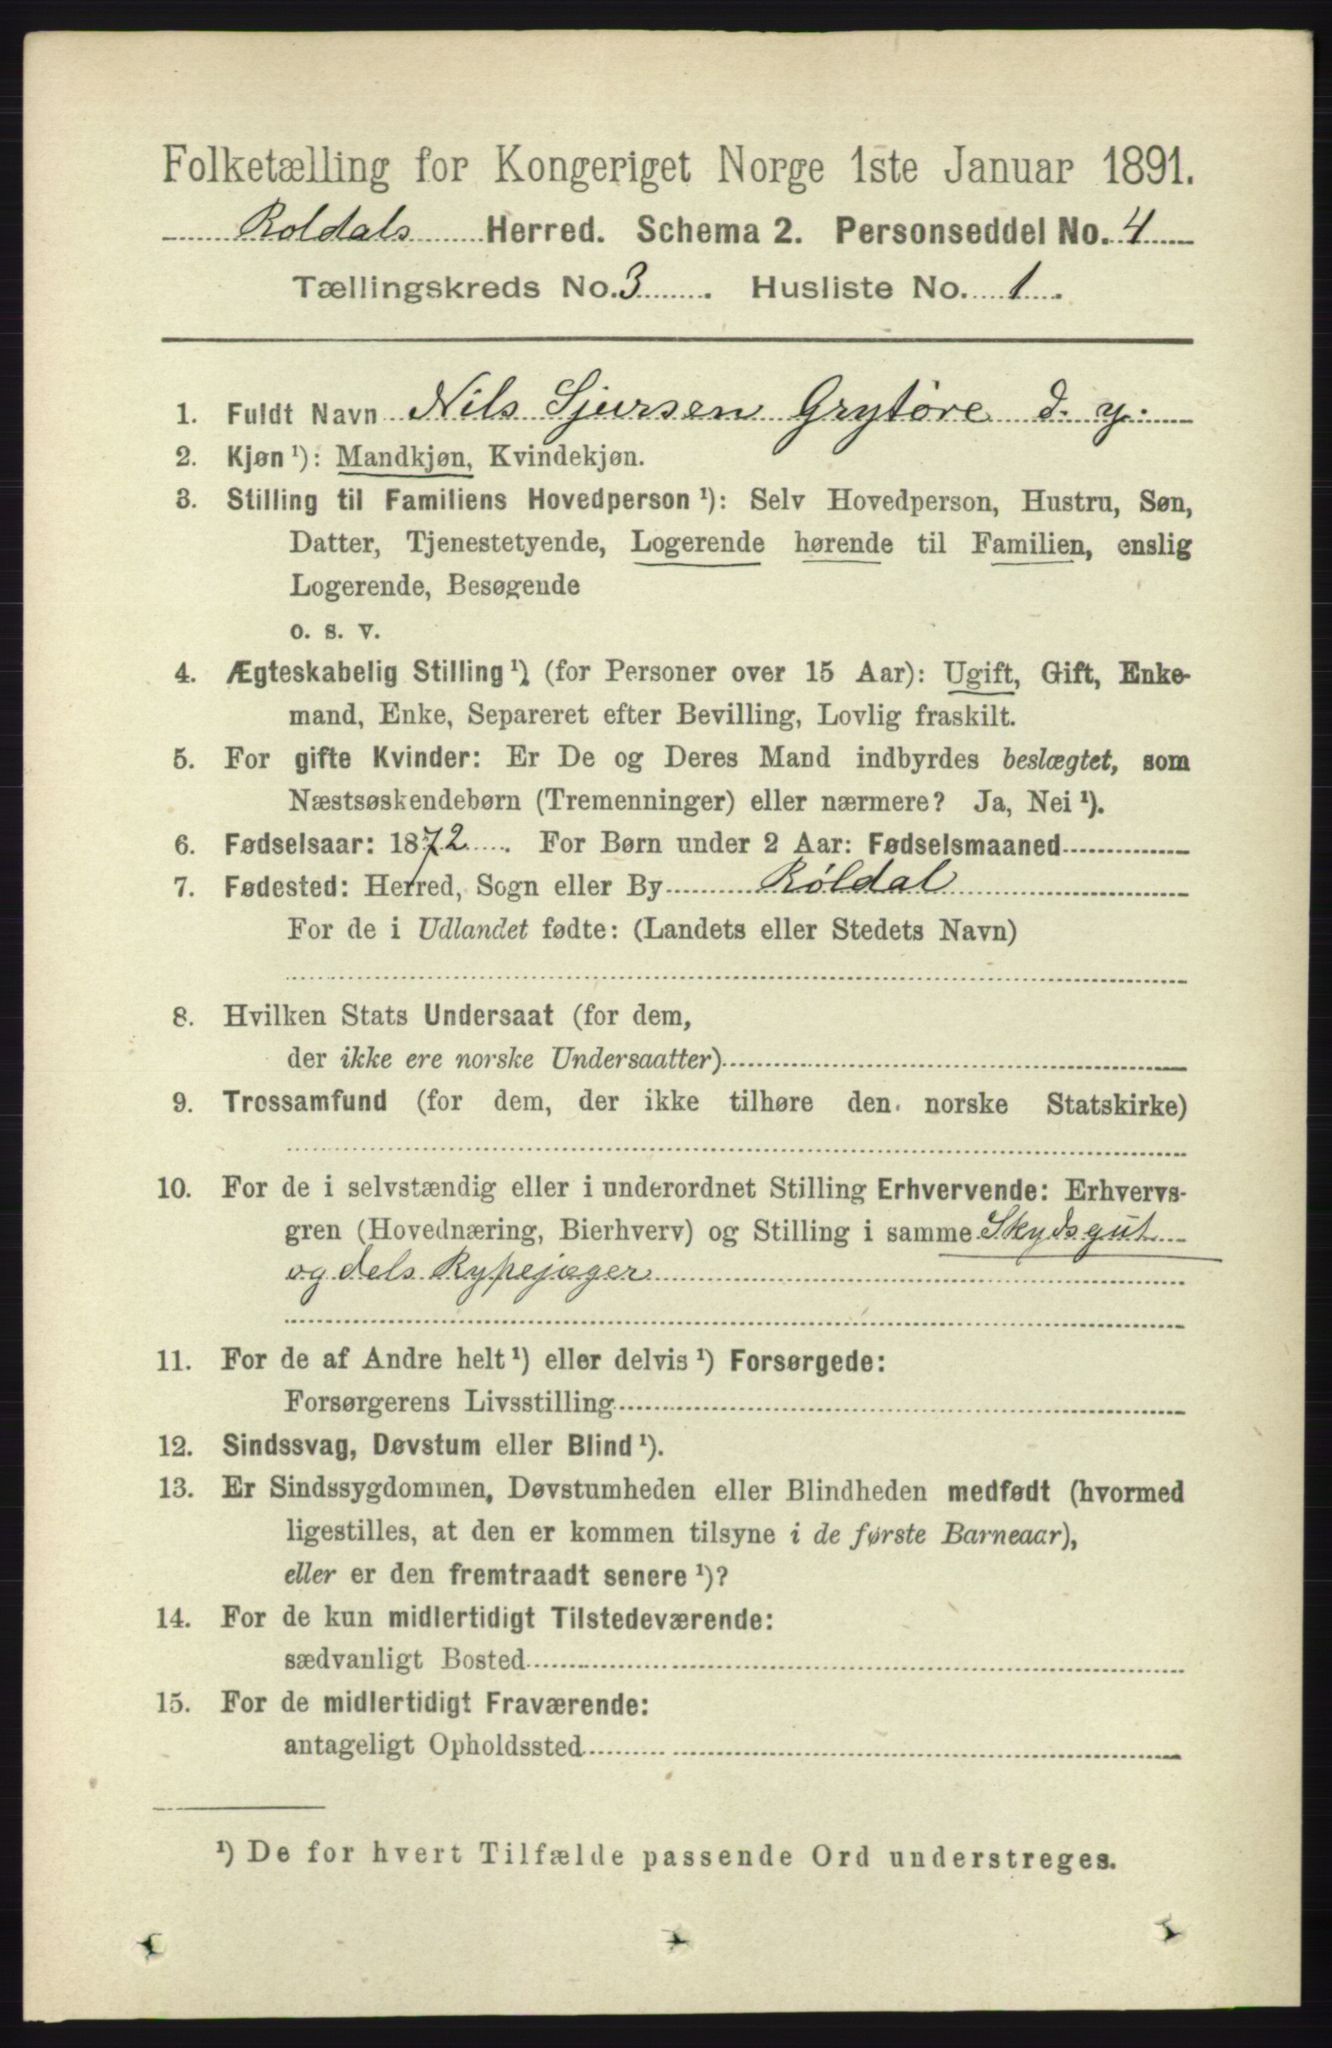 Folketælling for Kongeriget Norge 1ste Januar 1891.
Roldals Herred. Schema 2. Personseddel No. 4
Tællingskreds No. 3. Husliste No. 1.
1. Fuldt Navn Nils Sjursen Grytøre d. y.
2. Kjøn ¹): Mandkjøn, Kvindekjøn.
3. Stilling til Familiens Hovedperson ¹): Selv Hovedperson, Hustru, Søn,
Datter, Tjenestetyende, Logerende hørende til Familien, enslig
Logerende, Besøgende
o. s. v.
4. Ægteskabelig Stilling ¹) (for Personer over 15 Aar): Ugift, Gift, Enke-
mand, Enke, Separeret efter Bevilling, Lovlig fraskilt.
5. For gifte Kvinder: Er De og Deres Mand indbyrdes beslægtet, som
Næstsøskendebørn (Tremenninger) eller nærmere? Ja, Nei ¹).
6. Fødselsaar: 1872. For Børn under 2 Aar: Fødselsmaaned
7. Fødested: Herred, Sogn eller By Røldal
For de i Udlandet fødte: (Landets eller Stedets Navn)
8. Hvilken Stats Undersaat (for dem,
der ikke ere norske Undersaatter)
9. Trossamfund (for dem, der ikke tilhøre den norske Statskirke)
10. For de i selvstændig eller i underordnet Stilling Erhvervende: Erhvervs-
gren (Hovednæring, Bierhverv) og Stilling i samme Skydsgut
og dels Rypejæger
11. For de af Andre helt ¹) eller delvis ¹) Forsørgede:
Forsørgerens Livsstilling
12. Sindssvag, Døvstum eller Blind ¹).
13. Er Sindssygdommen, Døvstumheden eller Blindheden medfødt (hvormed
ligestilles, at den er kommen tilsyne i de første Barneaar),
eller er den fremtraadt senere ¹)?
14. For de kun midlertidigt Tilstedeværende:
sædvanligt Bosted
15. For de midlertidigt Fraværende:
antageligt Opholdssted
¹) De for hvert Tilfælde passende Ord understreges.